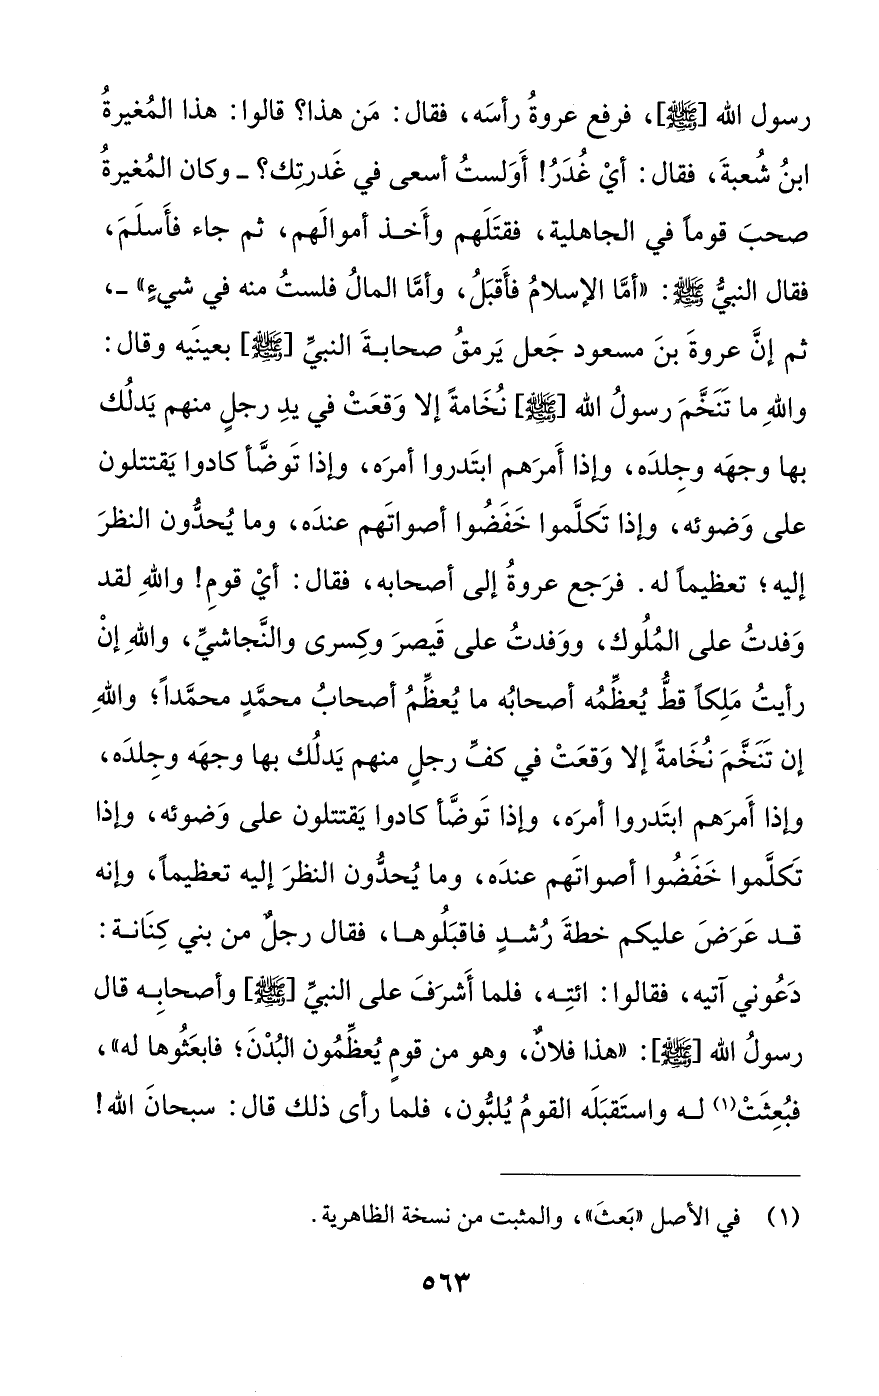 رسول الله [ﷺ]، فرفع عروةُ رأسَه، فقال: مَن هذا؟ قالوا: هذا المُغيرةُ
ابنُ شُعبةَ، فقال: أيْ غُدَرُ! أَوَلستُ أسعى في غَدرتِك؟ ـ وكان المُغيرةُ
صحبَ قوماً في الجاهلية، فقتَلَهم وأَخـذ أموالَهم، ثم جاء فأَسلَمَ،
فقال النبيُّ ﷺ: «أمَّا الإسلامُ فأَقبَلُ، وأمَّا المالُ فلستُ منه في شيءٍ» ـ،
ثم إنَّ عروةَ بنَ مسعود جَعل يَرمقُ صحابـةَ النبيِّ [ﷺ] بعينَيه وقال:
واللهِ ما تَنَخَّمَ رسولُ الله [ﷺ] نُخَامةً إلا وَقعَتْ في يدِ رجلٍ منهم يَدلُك
بها وجهَه وجِلدَه، وإذا أَمرَهم ابتَدروا أمرَه، وإذا تَوضَّأ كادوا يَقتتلون
على وَضوئه، وإذا تَكلَّموا خَفَضُوا أصواتَهم عندَه، وما يُحدُّون النظرَ
إليه؛ تعظيماً له. فرَجع عروةُ إلى أصحابه، فقال: أيْ قومِ! واللهِ لقد
وَفدتُ على المُلُوك، ووَفدتُ على قَيصرَ وكِسرى والنَّجاشيِّ، واللهِ إنْ
رأيتُ مَلِكاً قطُّ يُعظِّمُه أصحابُه ما يُعظِّمُ أصحابُ محمَّدٍ محمَّداً؛ واللهِ
إن تَنَخَّمَ نُخَامةً إلا وَقعَتْ في كفِّ رجلٍ منهم يَدلُك بها وجهَه وجِلدَه،
وإذا أَمرَهم ابتَدروا أمرَه، وإذا تَوضَّأ كادوا يَقتتلون على وَضوئه، وإذا
تَكلَّموا خَفَضُوا أصواتَهم عندَه، وما يُحدُّون النظرَ إليه تعظيماً، وإنه
قـد عَرَضَ عليكم خطةَ رُشـدٍ فاقبَلُوهـا، فقال رجلٌ من بني كِنَانـة:
دَعُوني آتيه، فقالوا: ائتِـه، فلما أَشرَفَ على النبيِّ [ﷺ] وأصحابِـه قال
رسولُ الله [ﷺ]: «هذا فلانٌ، وهو من قومٍ يُعظِّمُون البُدْنَ؛ فابعَثُوها له»،
فبُعِثَتْ(١) لـه واستَقبَلَه القومُ يُلبُّون، فلما رأى ذلك قال: سبحانَ الله!
(١) في الأصل «بَعثَ»، والمثبت من نسخة الظاهرية.
٥٦٣